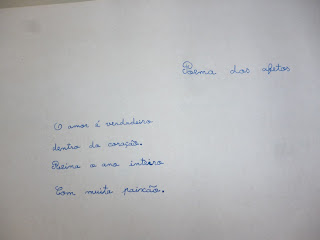 Poema dos afetos
O amor é verdadeiro
dentro do coração.
Reina o ano inteiro
Com muita paixão.